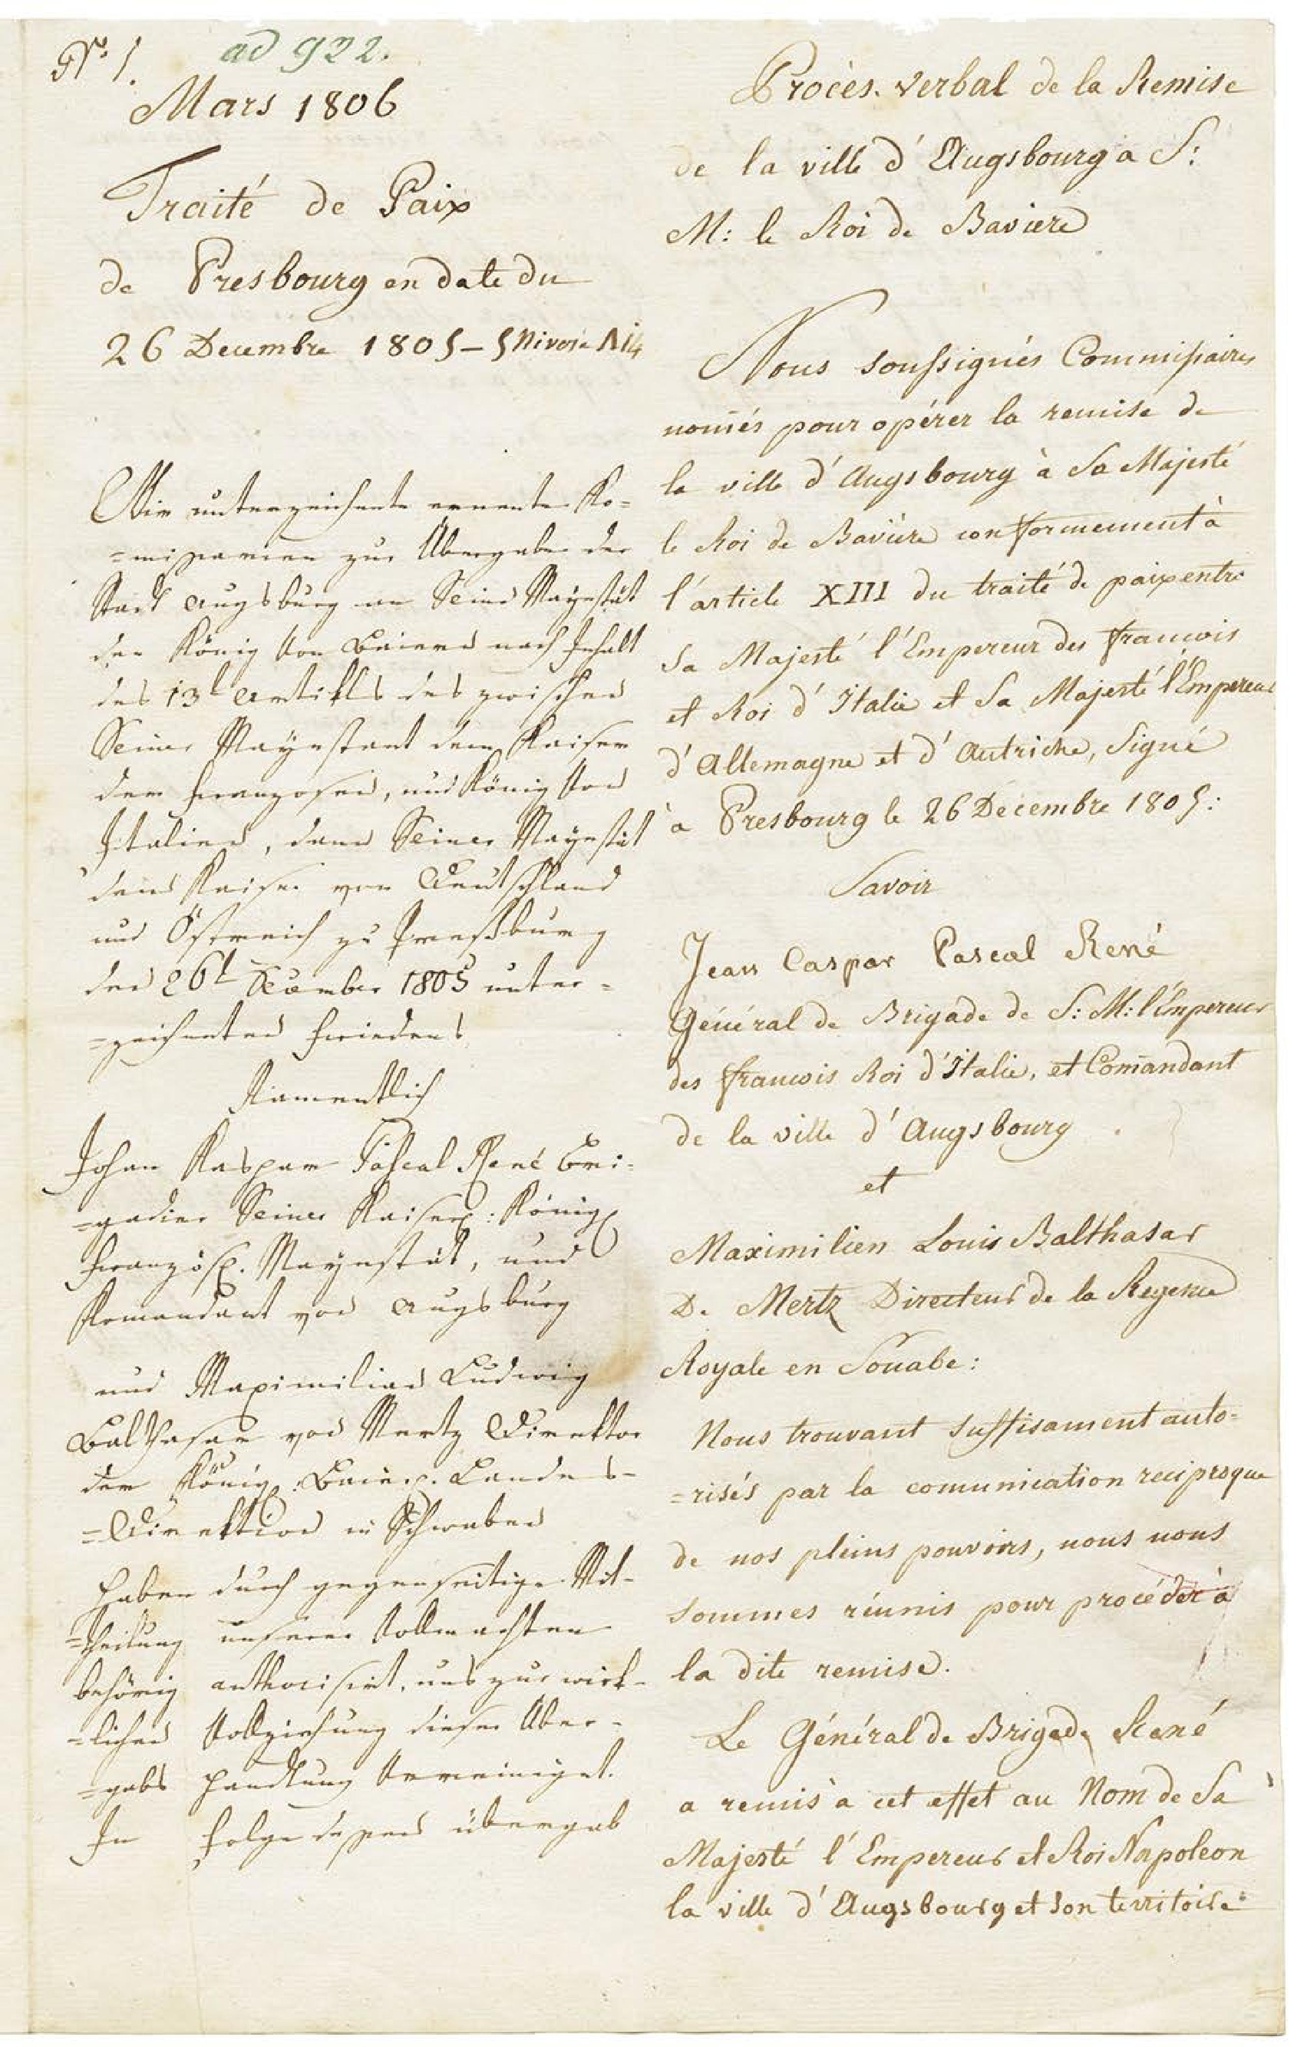 Nº 1.
ad 922.
Mars 1806
Traité de Paix
de Presbourg en date du
26 Decembre 1805 – 5 Nivose
Wir unterzeichnete ernente Ko=
=missarien zur Übergabe der
Stadt Augsburg an Seine Mayestät
den König von Baiern nach Inhalt
des 13t Artikels des zwischen
Seiner Mayestaet dem Kaiser
der Franzosen, und König von
Italien, dann Seiner Mayestät
dem Kaiser von Deutschland
und Östreich zu Preßburg
den 26t December 1805 unter=
=zeichneten Friedens
Namentlich
Johan Kaspar Pascal René Bri=
=gadier Seiner Kaiserl: Königl
Französl. Mayestät, und
Komandant von Augsburg
und Maximilian Ludwig
Balthasar von Mertz Direktor
der Königl. Baierl. Landes=
=Direktion in Schwaben
haben durch gegenseitige Mit=
=theilung unserer Vollmachten
behörig authorisirt, uns zur wirk=
=lichen Vollziehung dieser Über=
=gabs Handlung vereiniget.
In Folge dessen übergab
Procès. verbal de la Remise
de la ville d'Augsbourg a S:
M: le Roi de Baviere
Nous soussignés Commissaires
nom̄és pour opérer la remise de
la ville d'Augsbourg à Sa Majesté
le Roi de Baviére conformement à
l'article XIII du traité de paix entre
Sa Majesté l'Empereur des francois
et Roi d'Italie et Sa Majesté l'Empereur
d'Allemagne et d'Autriche, Signé
à Presbourg le 26 Décembre 1805:
Savoir
Jean Caspar Pascal René
Général de Brigade de S: M: l'Empereur
des francois Roi d'Italie, et Com̄andant
de la ville d'Augsbourg
et
Maximilien Louis Balthasar
De Mertz Directeur de la Regence
Royale en Souabe:
Nous trouvant suffisament auto=
=risés par la comunication reciproque
de nos pleins pouvoirs, nous nous
sommes réunis pour procéder à
la dite remise.
Le Général de Brigade René
a remis à cet effet au Nom de Sa
Majesté l'Empereur et Roi Napoleon
la ville d'Augsbourg et son territoire